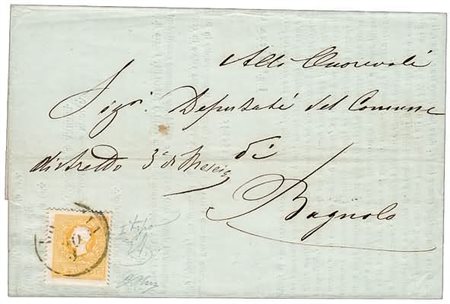 Allo Onorevoli
Sigri Deputati del Comune
distretto 3° di Brescia di
Bagnolo
I tipo